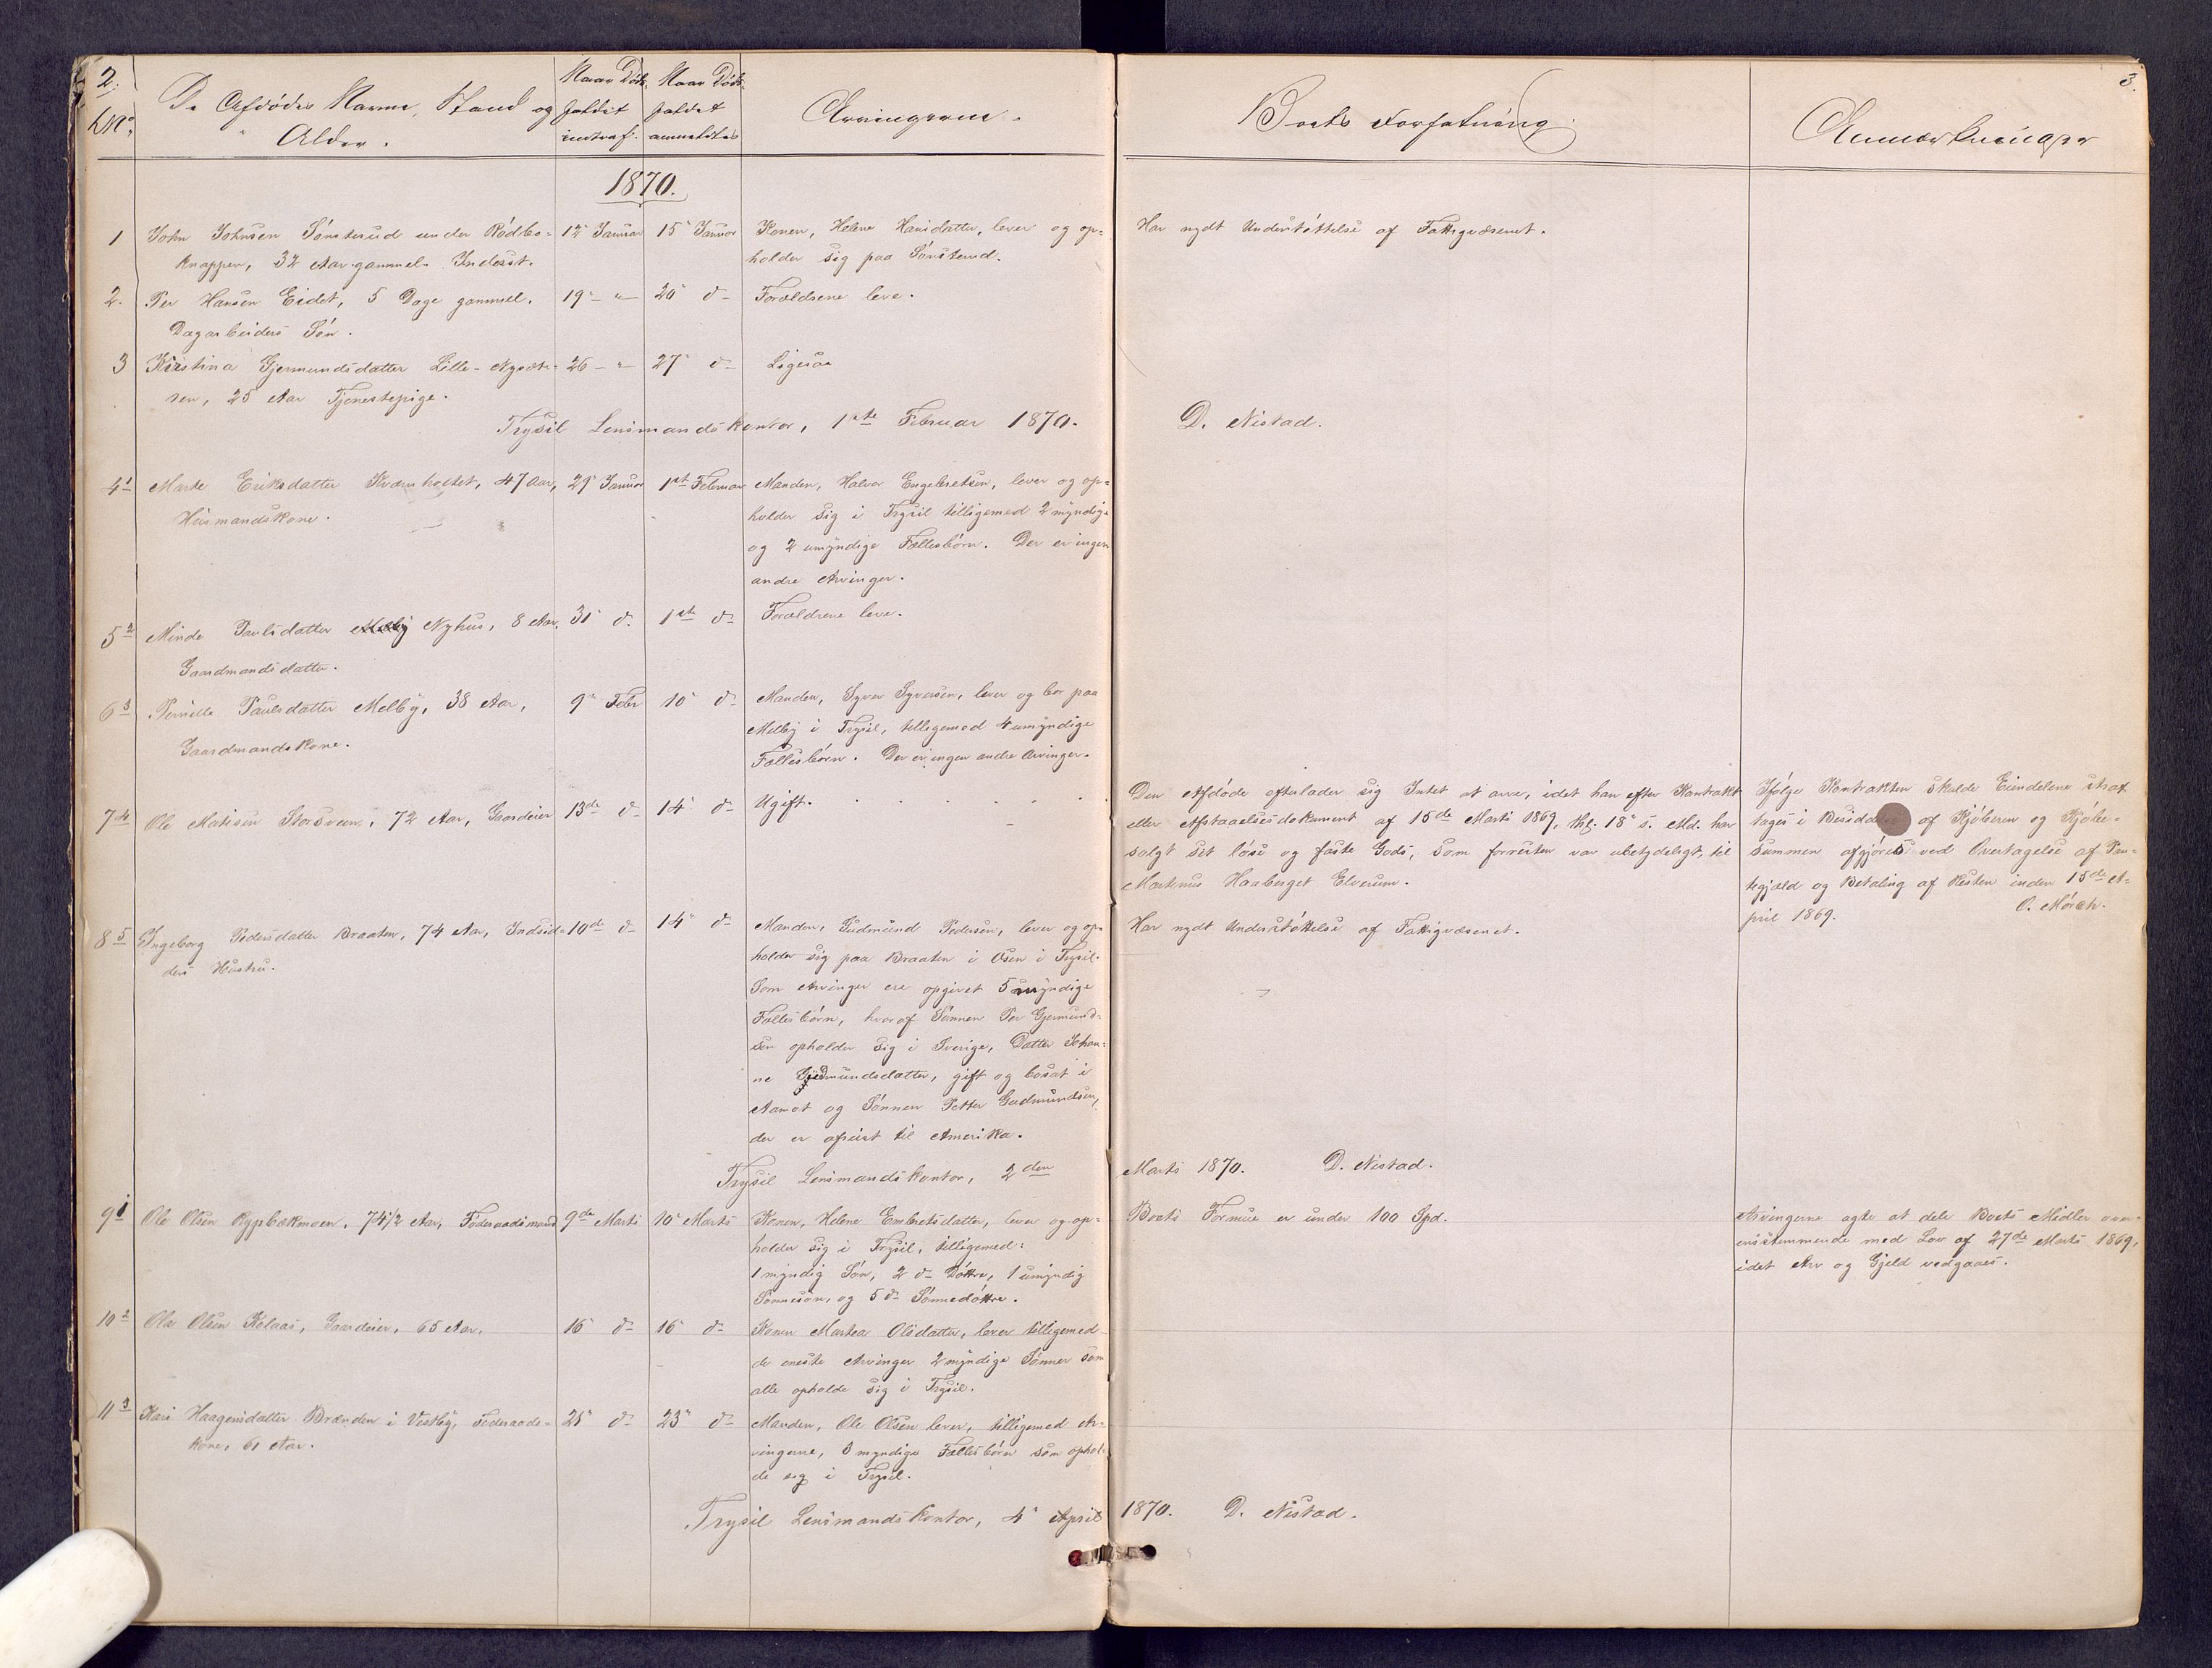 2.
3.
No
De Afdødes Navne, Stand og
Alder.
Naar Døds-
faldet
indtraf.
Naar Døds-
faldet
anmeldtes
Arvingerne.
Boets Forfatning.
Anmærkninger
1870.
1
John Johnsen Sønsterud under Rødbæ-
knappen, 32 Aar gammel. Inderst.
12' Januar
15' Januar
Konen, Helene Hansdatter, lever og op-
holder sig paa Sønsterud.
Har nydt Understøttelse af Fattigvæsenet.
2.
Per Hansen Eidet, 5 Dage gammel.
Dagarbeiders Søn.
19' - " -
20' d-
Forældrene leve.
3
Kristina Gjermundsdatter Lille-Nysæte-
ren, 25 Aar Tjenestepige.
26 - " -
27' d-
Ligesaa
Trysil Lensmandskontor, 1ste Februar 1870.
D. Nistad.
4 1
Marte Eriksdatter Kværnholtet, 47 Aar,
Husmandskone.
29' Januar
1ste Februar
Manden, Halvor Engebretsen, lever og op-
holder sig i Trysil tilligemed 2 myndige
og 2 umyndige Fællesbørn. Der er ingen
andre Arvinger.
5 2
Minde Paulsdatter Melby Nyhus, 8 Aar.
Gaardmandsdatter.
31' d-
1ste d-
Forældrene leve.
6 3
Pernille Paulsdatter Melby, 38 Aar,
Gaardmandskone.
9' Febr
10' d-
Manden, Syver Syversen, lever og bor paa
Melby i Trysil, tilligemed 4 umyndige
Fællesbørn. Der er ingen andre Arvinger.
7 4
Ole Matisen Storsveen, 72 Aar, Gaardeier
13de d-
14' d-
Ugift.
Den Afdøde efterlader sig Intet at arve, idet han efter Kontrakt
eller Afstaaelsesdokument af 15de Marts 1869, thl. 18' s. Md. har
solgt sit løse og faste Gods, som forresten var ubetydeligt, til
Martinus Haaberget Elverum.
Ifølge Kontrakten skulde Eiendelene straf
tages i Besiddelse af Kjøberen og Kjøbe-
summen afgjøres ved Overtagelse af Pan-
tegjæld og Betaling af Resten inden 15de A-
pril 1869. O. Mørch.
8 5
Ingeborg Pedersdatter Braaten, 74 Aar, Indsid-
ders Hustru.
10de d-
14' d-
Manden, Gudmund Pedersen, lever og op-
holder sig paa Braaten i Osen i Trysil.
Som Arvinger ere opgivet 5 myndige
Fællesbørn, hvoraf Sønnen Per Gjermund-
sen opholder sig i Sverige, Datter Johan-
ne Gudmundsdatter, gift og bosat i
Aamot og Sønnen Petter Gudmundsen,
der er afreist til Amerika.
Har nydt Understøttelse af Fattigvæsenet.
Trysil Lensmandskontor, 2den Marts 1870. D. Nistad.
9 1
Ole Olsen Rypbækmoen, 74 1/2 Aar, Føderaadsmand
9de Marts
10' Marts
Konen, Helene Embretsdatter, lever og op-
holder sig i Trysil, tilligemed:
1 myndig Søn, 2 d- Døttre, 1 umyndig
Sønnesøn, og 5 d- Sønnedøttre.
Boets Formue er under 100 Spd.
Arvingerne agte at dele Boets Midler over-
ensstemmende med Lov af 27de Marts 1869,
idet Arv og Gjeld vedgaaes.
10 2
Ole Olsen Kolaas, Gaardeier, 65 Aar.
16' d-
16' d-
Konen Martea Olsdatter, lever tilligemed
de eneste Arvinger 2 myndige Sønner som
alle opholde sig i Trysil.
11 3
Kari Haagensdatter Brænden i Vestby, Føderaads-
kone, 61 Aar.
21' d-
23' d-
Manden, Ole Olsen lever, tilligemed Ar-
vingerne, 3 myndige Fællesbørn som ophol-
de sig i Trysil.
Trysil Lensmandskontor, 4' April 1870. D. Nistad.